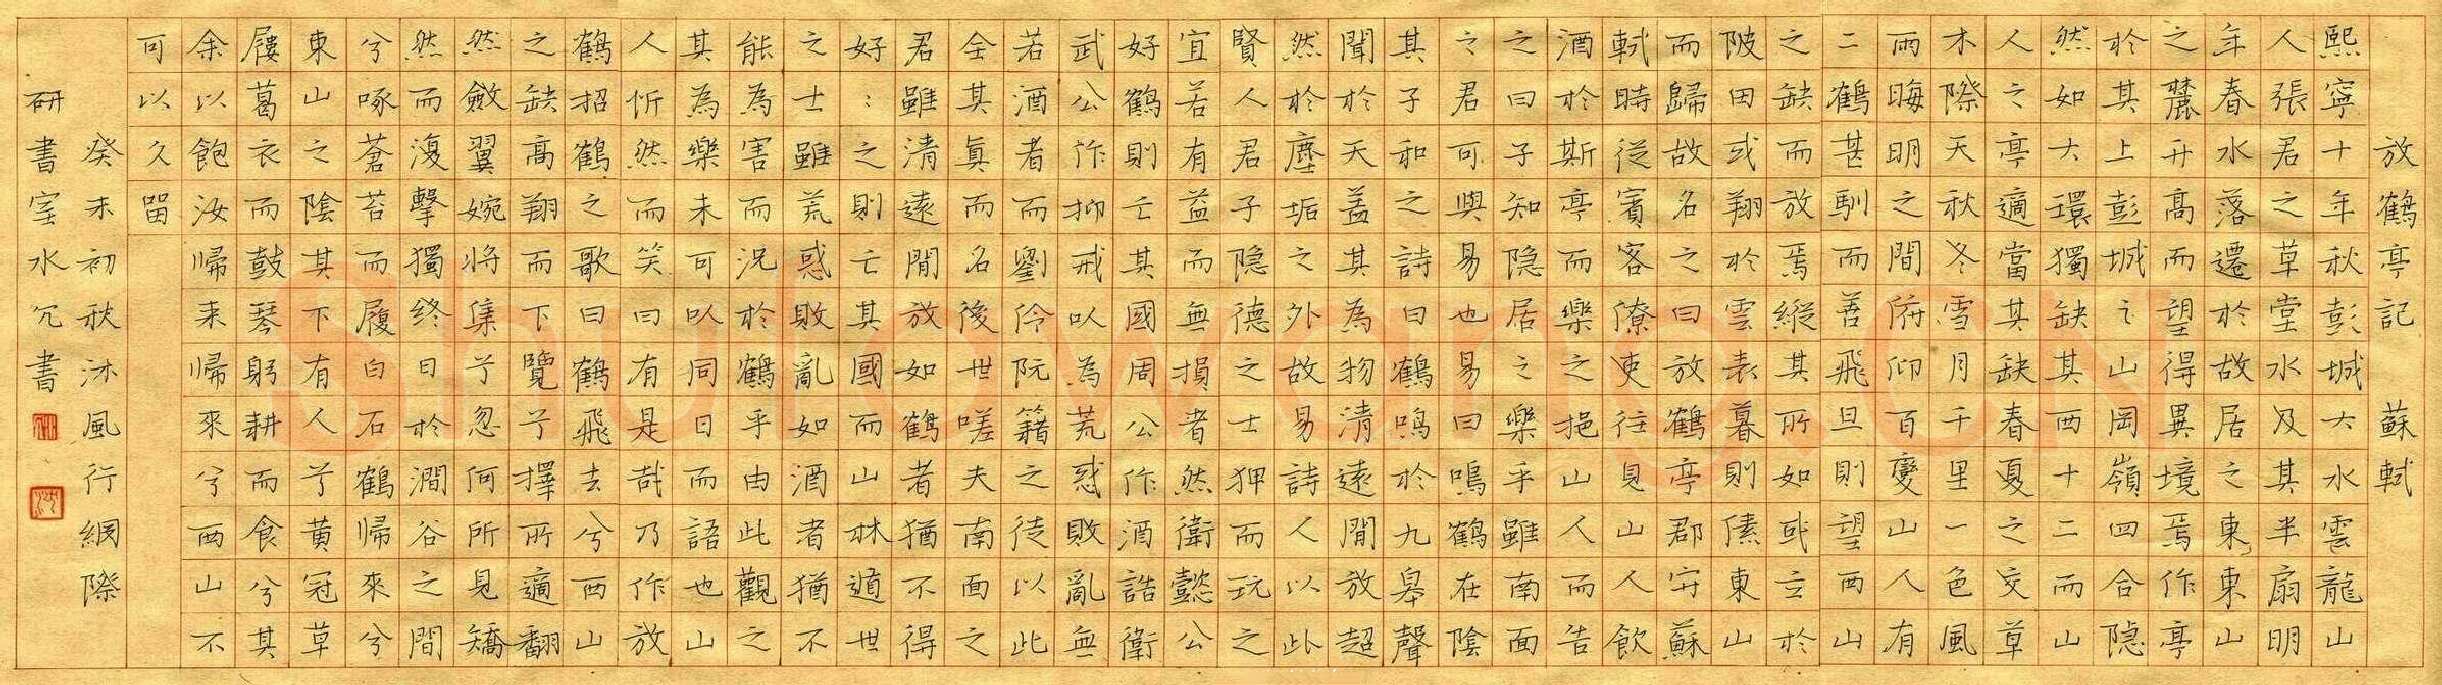 放鶴亭記 蘇軾
熙寧十年秋彭城大水雲龍山
人張君之草堂水及其半扇明
年春水落遷於故居之東東山
之麓升高而望得異境焉作亭
於其上彭城之山岡嶺四合隱
然如大環獨缺其西十二而山
人之亭適當其缺春夏之交草
木際天秋冬雪月千里一色風
雨晦明之間俯仰百變山人有
二鶴甚馴而善飛旦則望西山
之缺而放焉縱其所如或立於
陂田或翔於雲表暮則傃東山
而歸故名之曰放鶴亭郡守蘇
軾時從賓客僚吏往見山人飲
酒於斯亭而樂之挹山人而告
之曰子知隱居之樂乎雖南面
之君可與易也易曰鳴鶴在陰
其子和之詩曰鶴鳴於九皋聲
聞於天蓋其為物清遠閒放超
然於塵垢之外故易詩人以此
賢人君子隱德之士狎而玩之
宜若有益而無損者然衛懿公
好鶴則亡其國周公作酒誥衛
武公作抑戒以為荒惑敗亂無
若酒者而劉伶阮籍之徒以此
全其真而名後世嗟夫南面之
君雖清遠閒放如鶴者猶不得
好〻之則亡其國而山林遁世
之士雖荒惑敗亂如酒者猶不
能為害而況於鶴乎由此觀之
其為樂未可以同日而語也山
人忻然而笑曰有是哉乃作放
鶴招鶴之歌曰鶴飛去兮西山
之缺高翔而下覽兮擇所適翻
然斂翼婉將集兮忽何所見矯
然而復擊獨終日於澗谷之間
兮啄蒼苔而履白石鶴歸來兮
東山之陰其下有人兮黃冠草
屨葛衣而鼓琴躬耕而食兮其
余以飽汝歸来歸來兮西山不
可以久留
癸未初秋沐風行網際
研書室水冗書